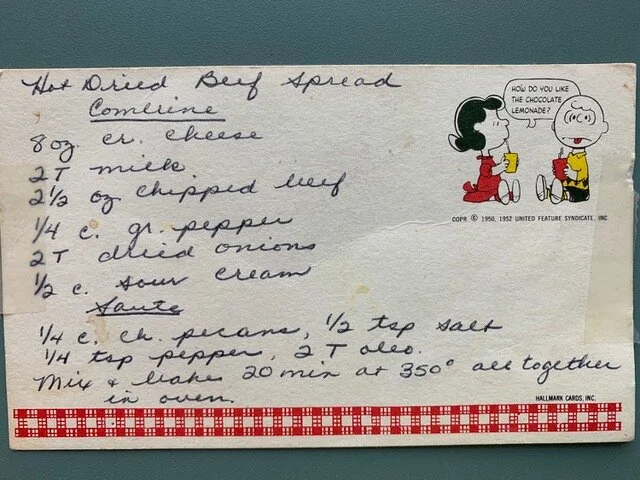 Hot Dried Beef Spread
Combine
8 oz cr. cheese
2 T milk
2 1/2 oz chipped beef
1/4 c. gr. pepper
2 T dried onions
1/2 c. sour cream
Saute
1/4 c. ch. pecans, 1/2 tsp salt
1/4 tsp pepper, 2 T oleo.
Mix & bake 20 min at 350° all together
in oven.
HOW DO YOU LIKE
THE CHOCOLATE
LEMONADE?
COPR. © 1950, 1952 UNITED FEATURE SYNDICATE, INC.
HALLMARK CARDS, INC.